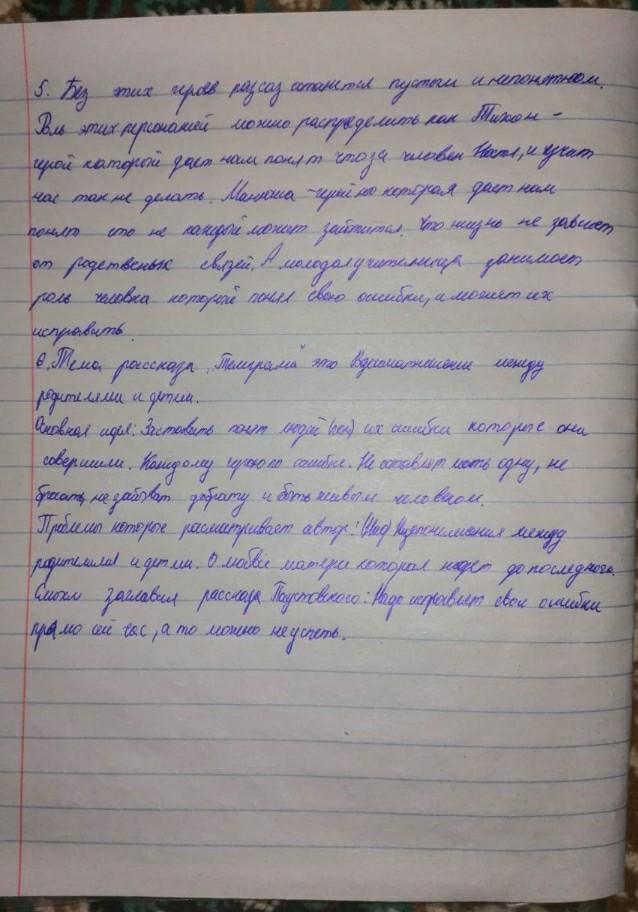 5. Без этих героев рассаз останется пустым и непонетном.
Роль этих персонажей можно распределить как Тихон –
герой каторый даст нам понят что за человек Настя, и хучит
нас так не делать. Манюша – героиню которая даст нам
понят сто не каждый может зайтится. Что жизнь не зависет
от родственых связей, А молодая учителница занимает
роль человка которой понел свою ошибки, и может их
исправить.
6. Тема рассказа „Телеграма" это Взаимаотношении между
родителями и детми.
Основная идея: Заставить понят людей (нас) их ошибки которые они
совершили. Каждому герою по ошибке. Не оставлет мать одну, не
бросать, не забыват доброту и быть живым человеком.
Проблемы которые расматривает автор: между
родителями и детми. О любви матери которая ждет до последнего.
Смысл заглавия рассказа Паустовского: Надо исправлет свои ошибки
прямо сей час, а то можно не успеть.